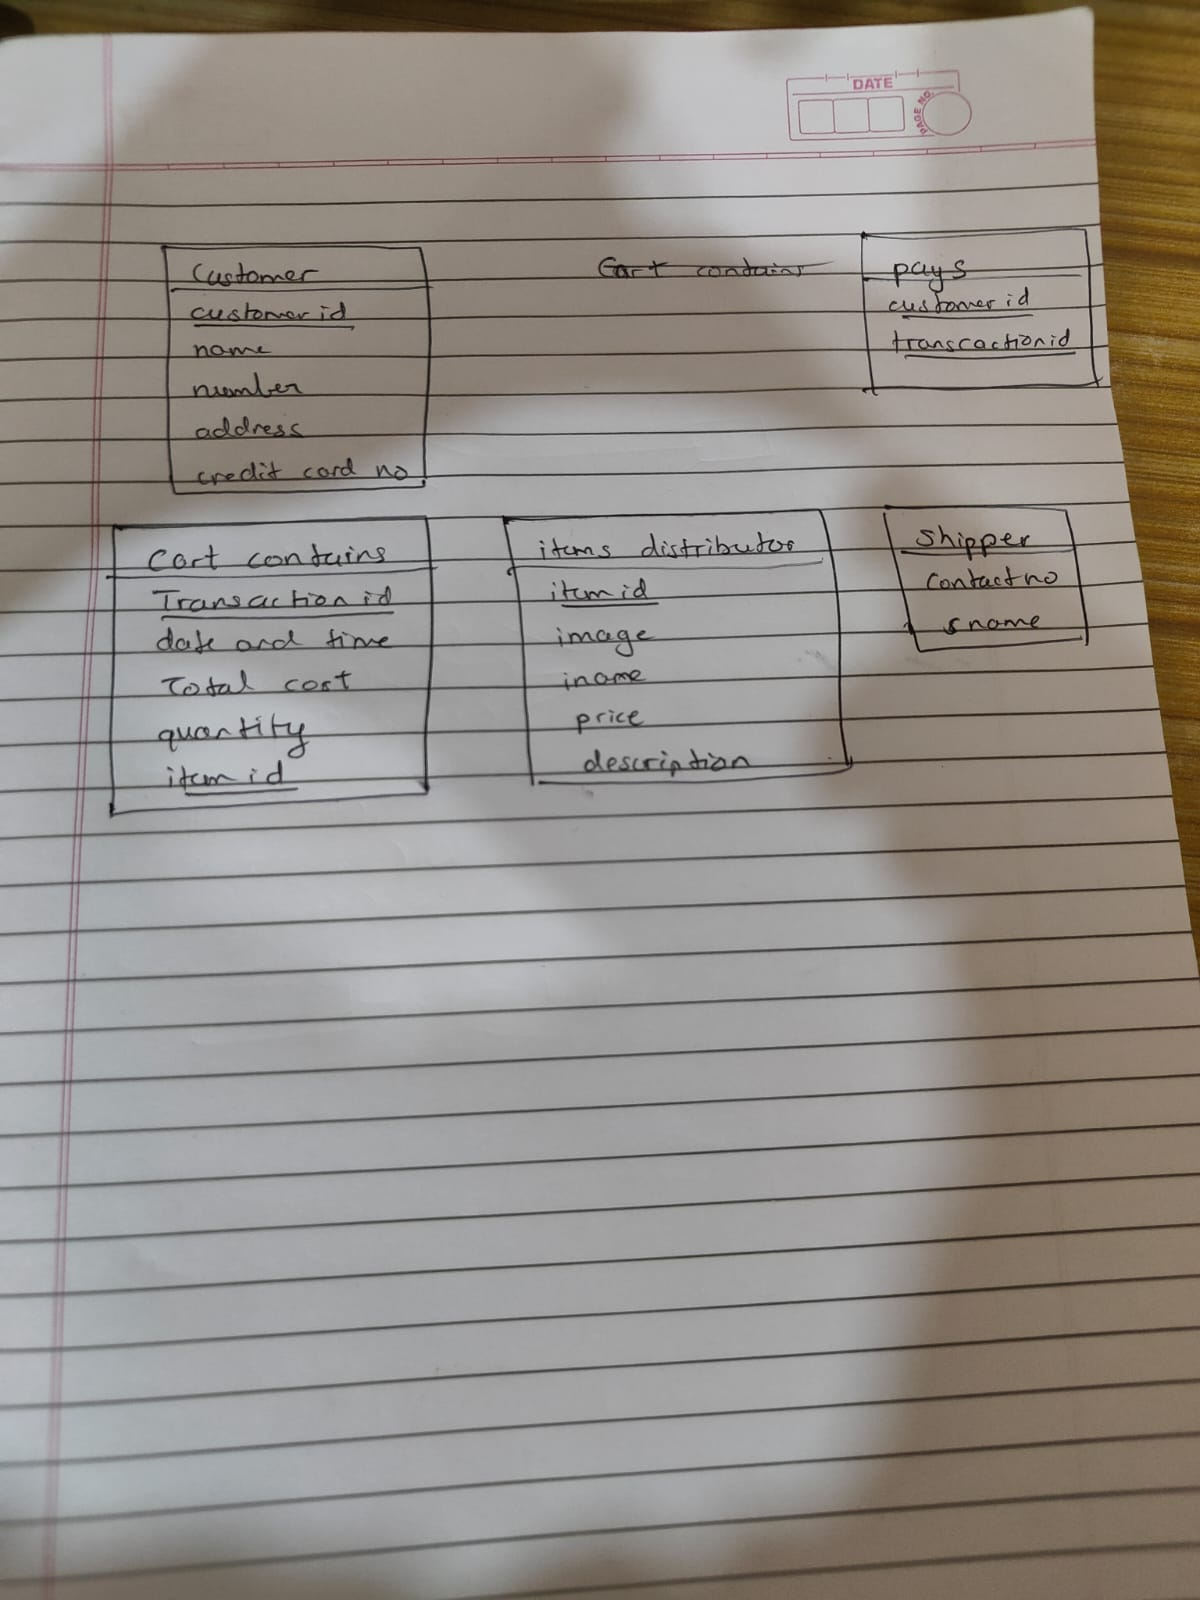 DATE
PAGE NO.
Customer
customer id
name
number
address
credit card no
Cart contains
pays
customer id
transcactionid
Cart contains
Transaction id
date and time
Total cost
quantity
item id
items distributor
item id
image
iname
price
description
Shipper
contact no
sname